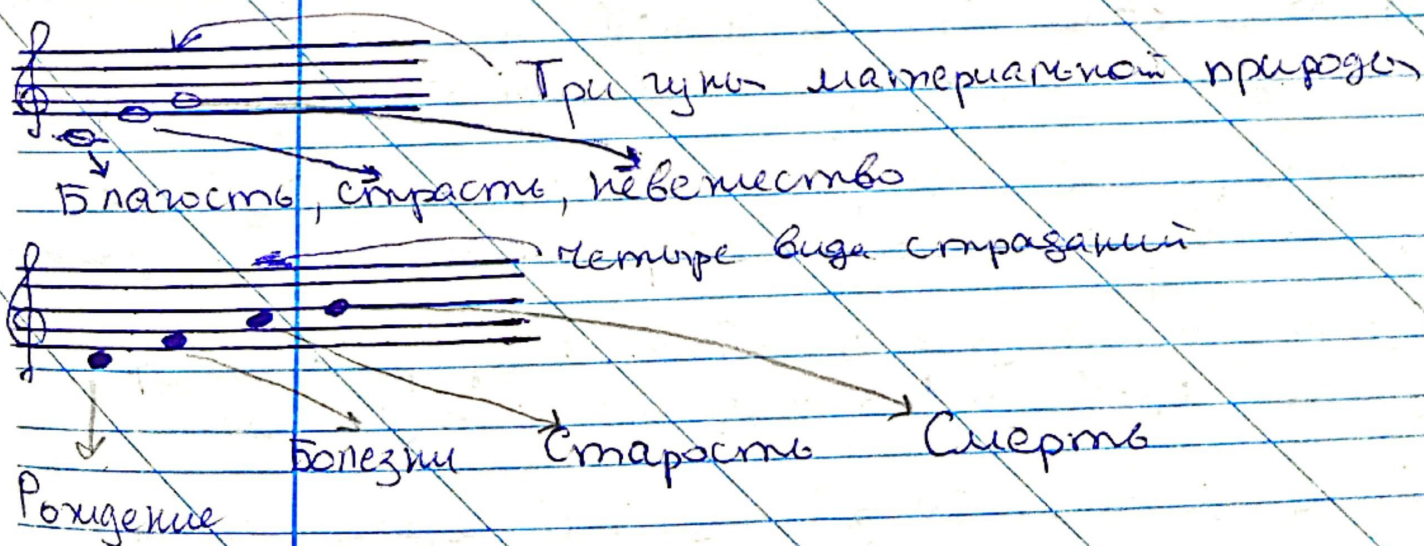 Три гуны материальной природы
Благость, страсть, невежество
четыре вида страданий
Болезни Старость Смерть
Рождение